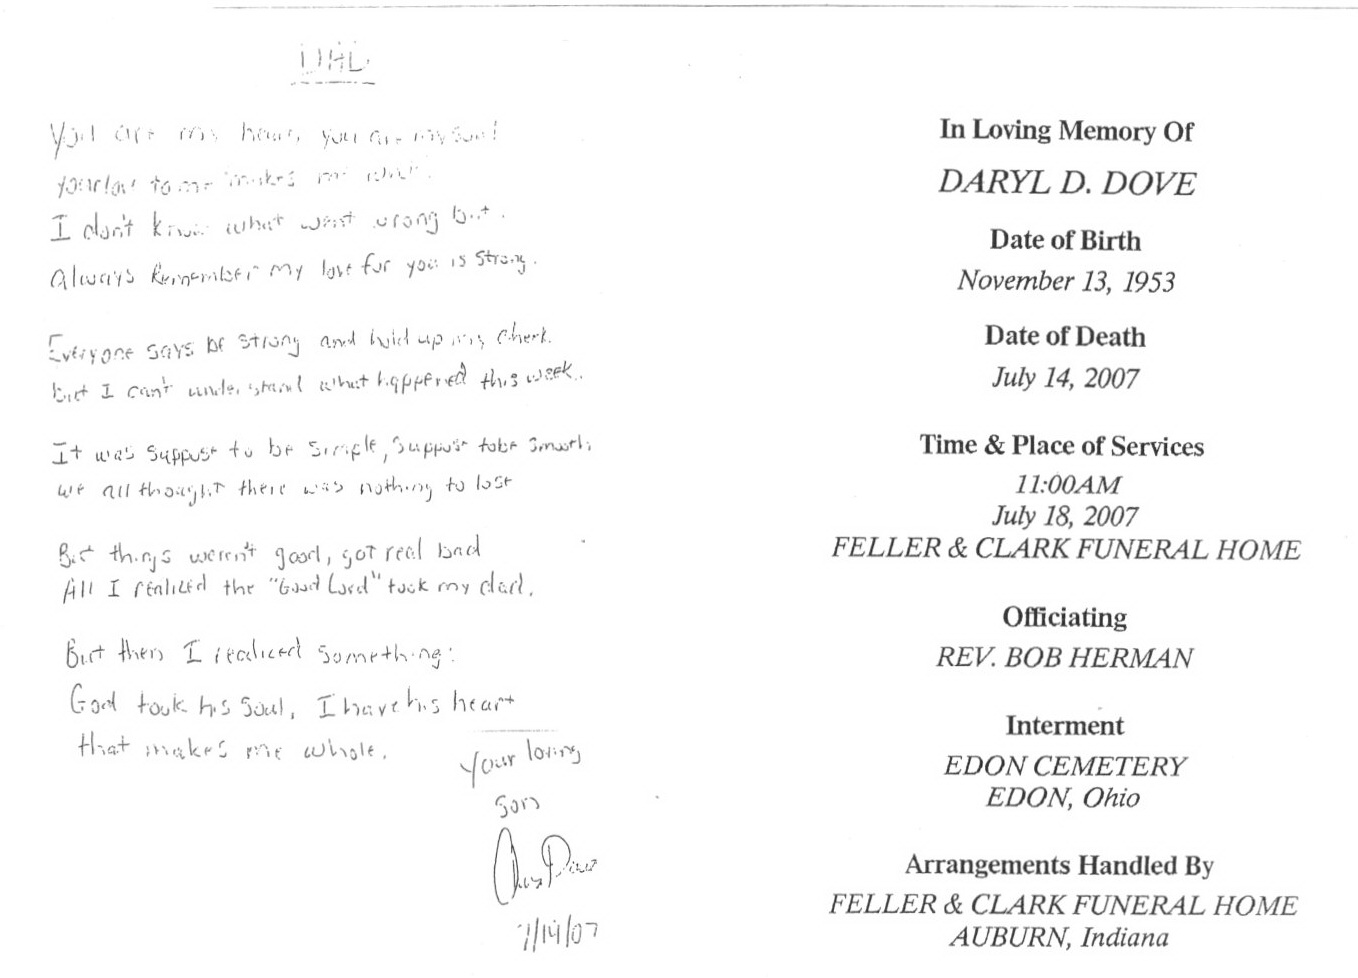 DAD
You are my heart, you are my soul
your love to me makes me whole.
I don't know what went wrong but.
Always Remember my love for you is strong.
Everyone says be strong and hold up my cheek.
but I can't understand what happened this week.
It was suppost to be simple, suppost to be smooth
we all thought there was nothing to lost
But things weren't good, got real bad
All I realized the "Good Lord" took my dad.
But then I realized something:
God took his soul, I have his heart
that makes me whole.
Your loving
son
7/14/07
In Loving Memory Of
DARYL D. DOVE
Date of Birth
November 13, 1953
Date of Death
July 14, 2007
Time & Place of Services
11:00AM
July 18, 2007
FELLER & CLARK FUNERAL HOME
Officiating
REV. BOB HERMAN
Interment
EDON CEMETERY
EDON, Ohio
Arrangements Handled By
FELLER & CLARK FUNERAL HOME
AUBURN, Indiana